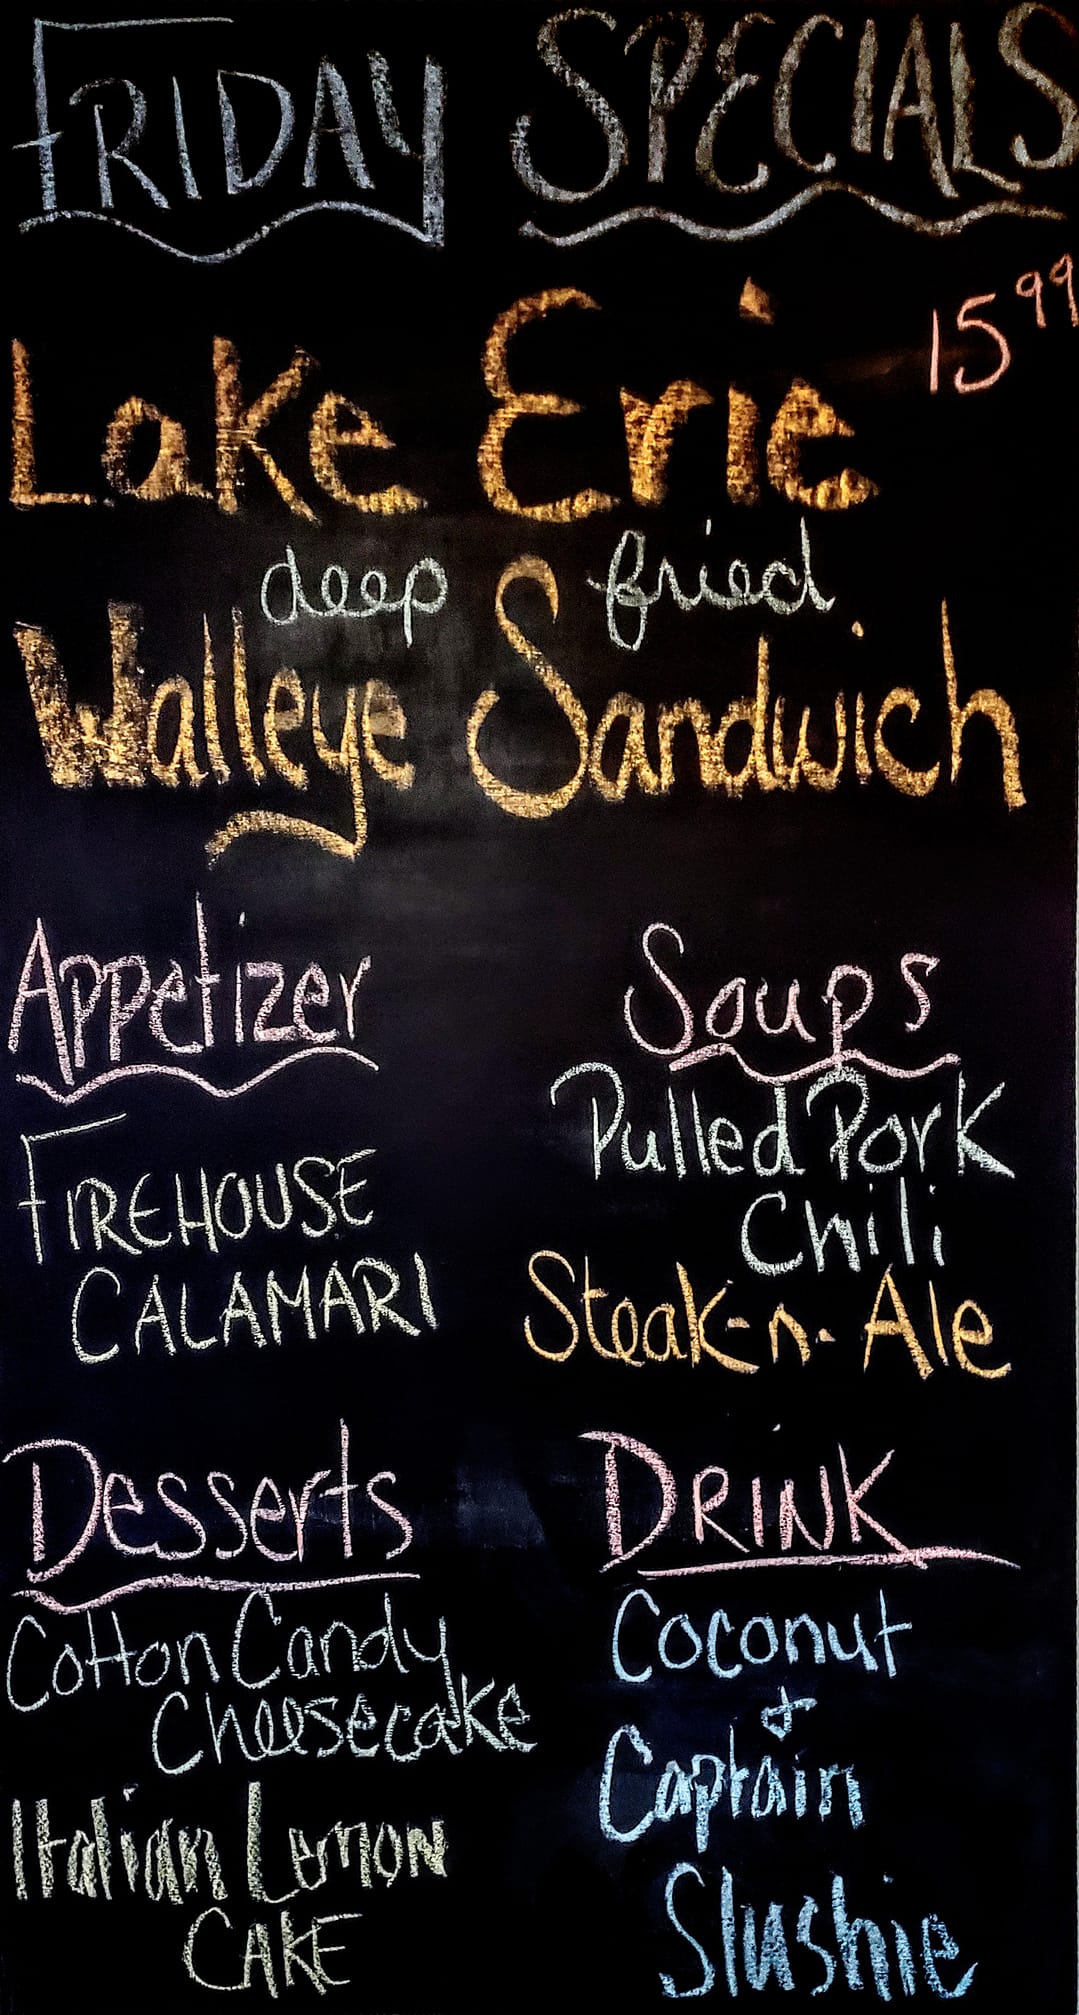 FRIDAY SPECIALS
15 99
Lake Erie
deep fried
Walleye Sandwich
Appetizer
FIREHOUSE
CALAMARI
Soups
Pulled Pork
Chili
Steak-n-Ale
Desserts
Cotton Candy
Cheesecake
Italian Lemon
CAKE
DRINK
Coconut
+
Captain
Slushie